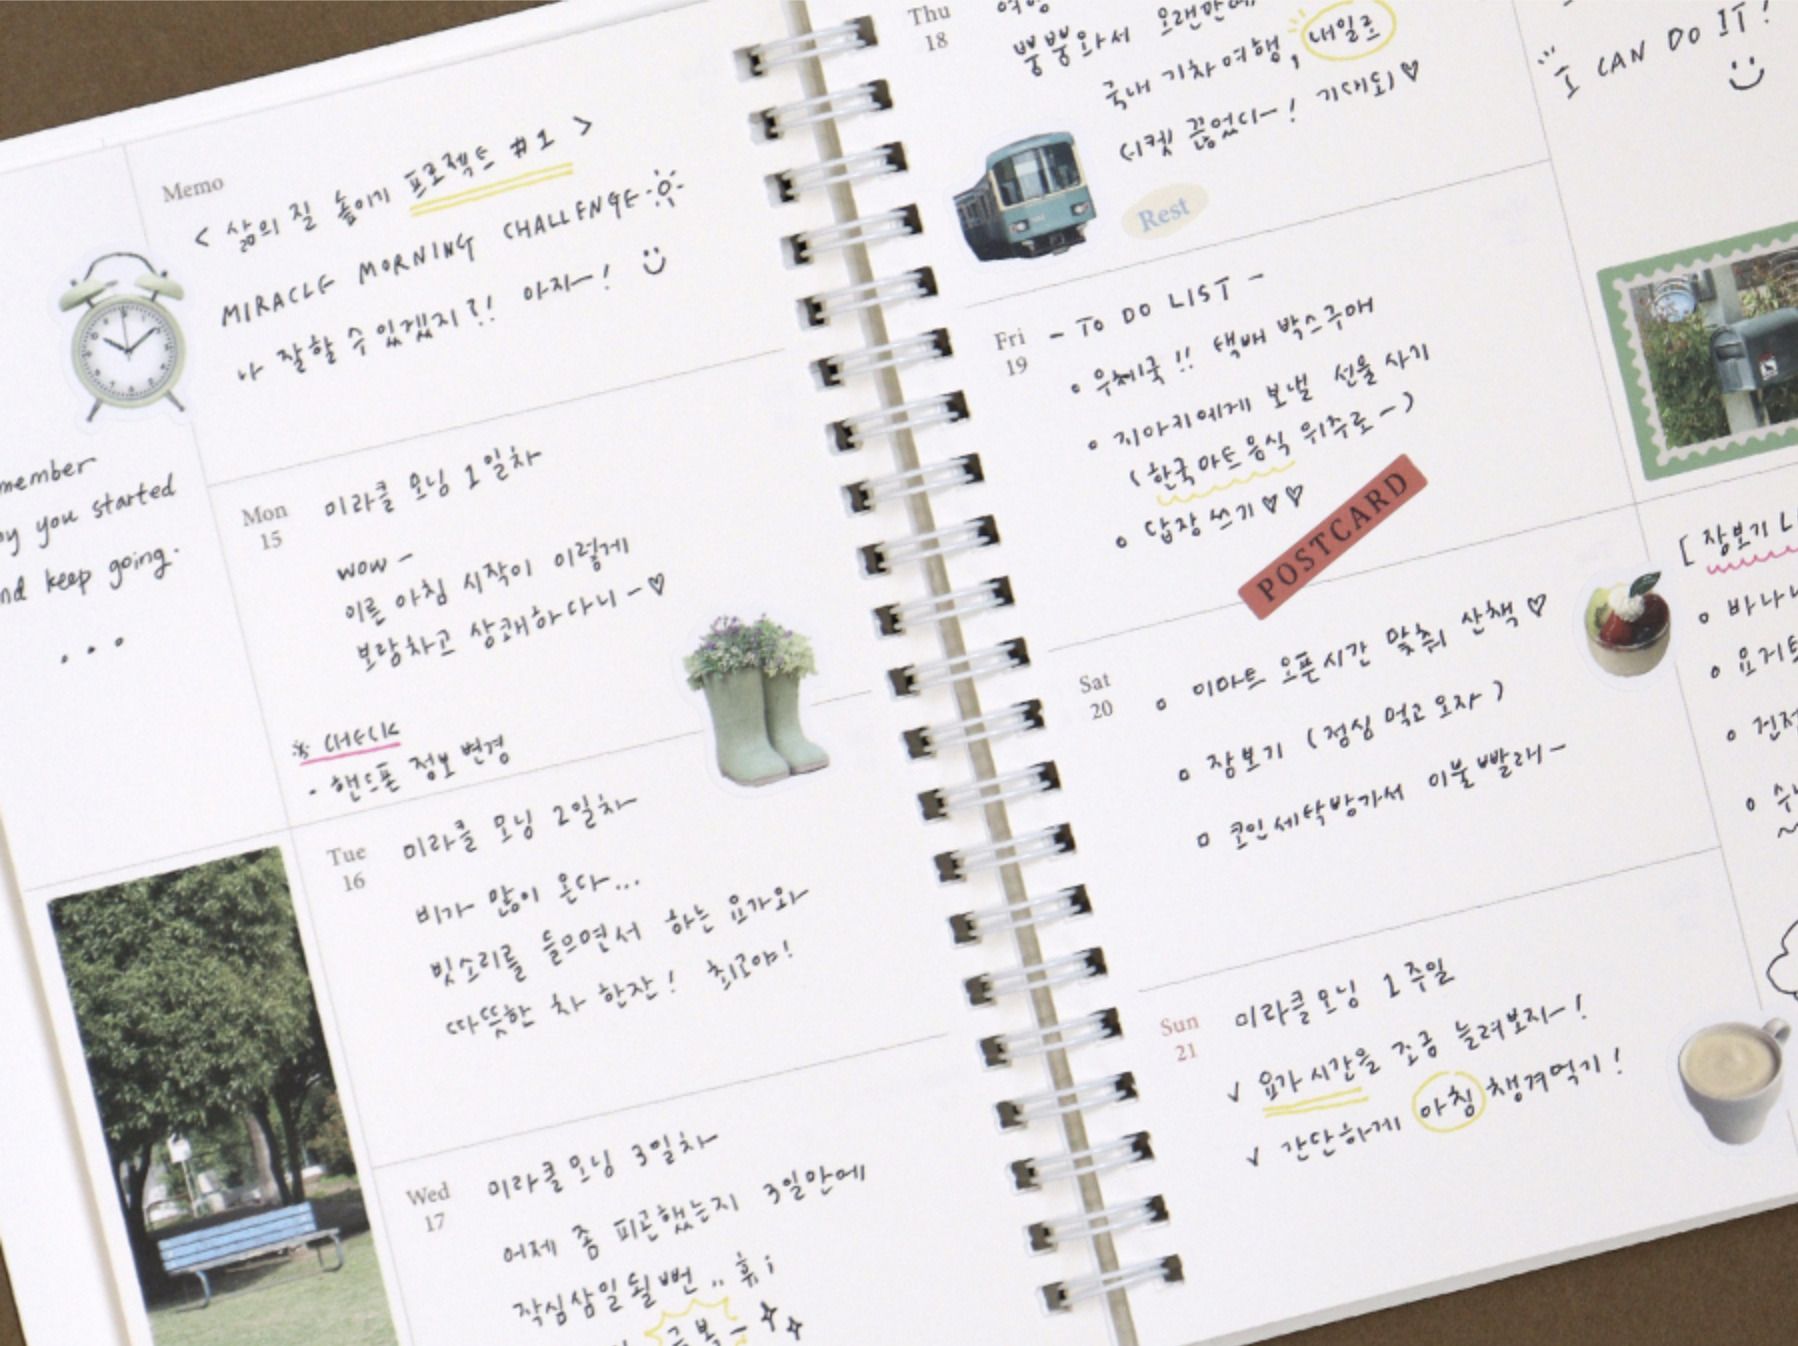 Memo
< 삶의 질 높이기 프로젝트 #1 >
MIRACLE MORNING CHALLENGE
나 잘할 수 있겠지?! 아자~!
member
you started
keep going.
...
Mon
15
미라클 모닝 1일차
wow~
이른 아침 시작이 이렇게
보람차고 상쾌하다니~♡
※ CHECK
- 핸드폰 정보 변경
Tue
16
미라클 모닝 2일차
비가 많이 온다...
빗소리를 들으면서 하는 요가와
따뜻한 차 한잔! 최고야!
Wed
17
미라클모닝 3일차
어제 좀 피곤했는지 3일만에
작심삼일될뻔.. 휴;
극복~
Thu
18
뿡뿡와서 오랜만에
국내 기차여행, 내일로
티켓 끊었다~! 기대돼♡
Rest
Fri
19
- TO DO LIST -
• 우체국!! 택배 박스구매
• 치아키에게 보낼 선물 사기
(한국마트음식 위주로~)
• 답장 쓰기♡♡
POSTCARD
Sat
20
이마트 오픈시간 맞춰 산책♡
장보기 (점심 먹고 오자)
코인세탁방가서 이불빨래~
Sun
21
미라클모닝 1주일
✓ 요가 시간을 조금 늘려보자~!
✓ 간단하게 아침 챙겨먹기!
I CAN DO IT!
[ 장보기